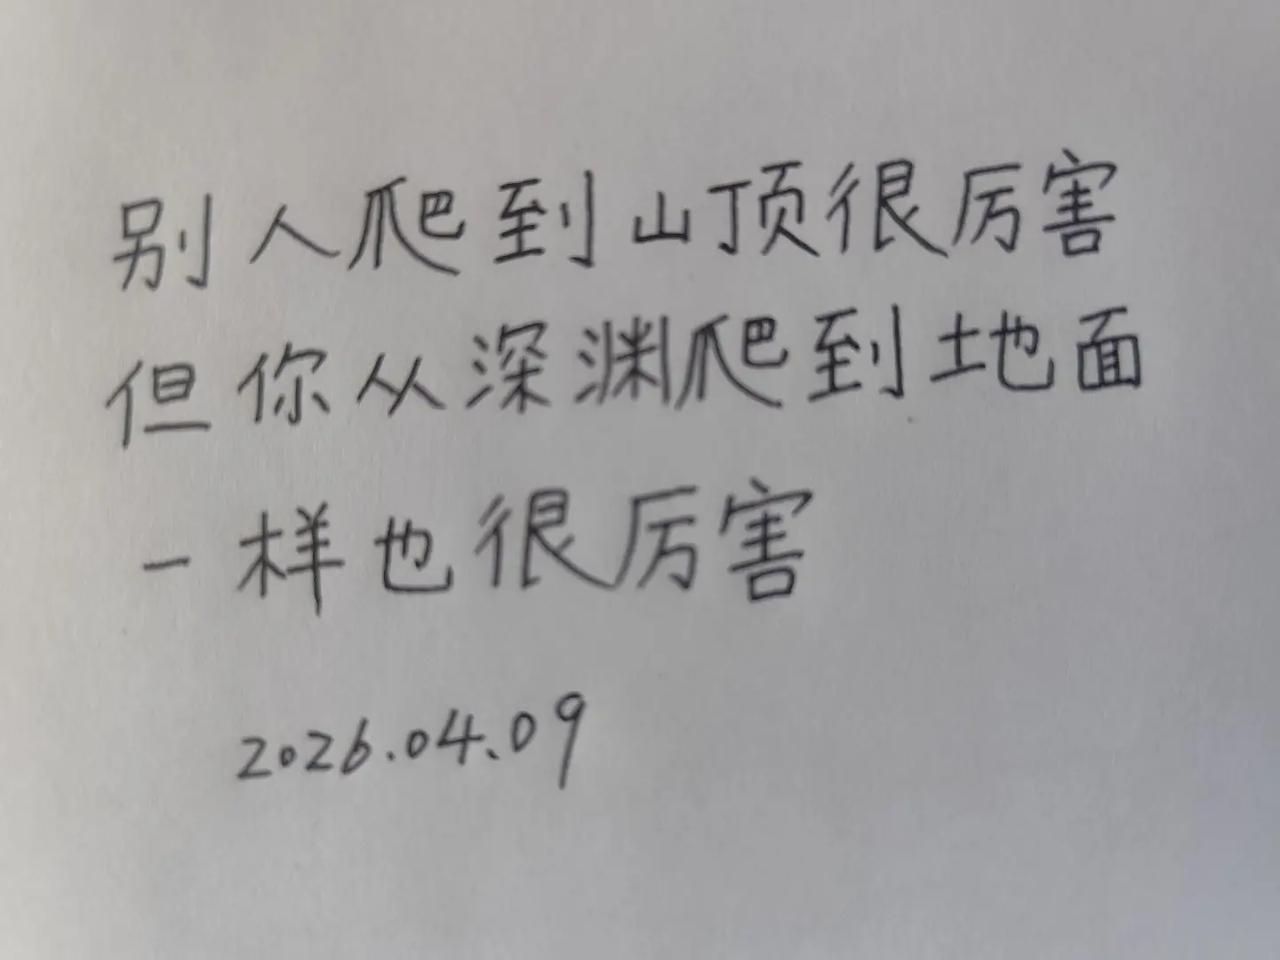 别人爬到山顶很厉害
但你从深渊爬到地面
一样也很厉害
2026.04.09